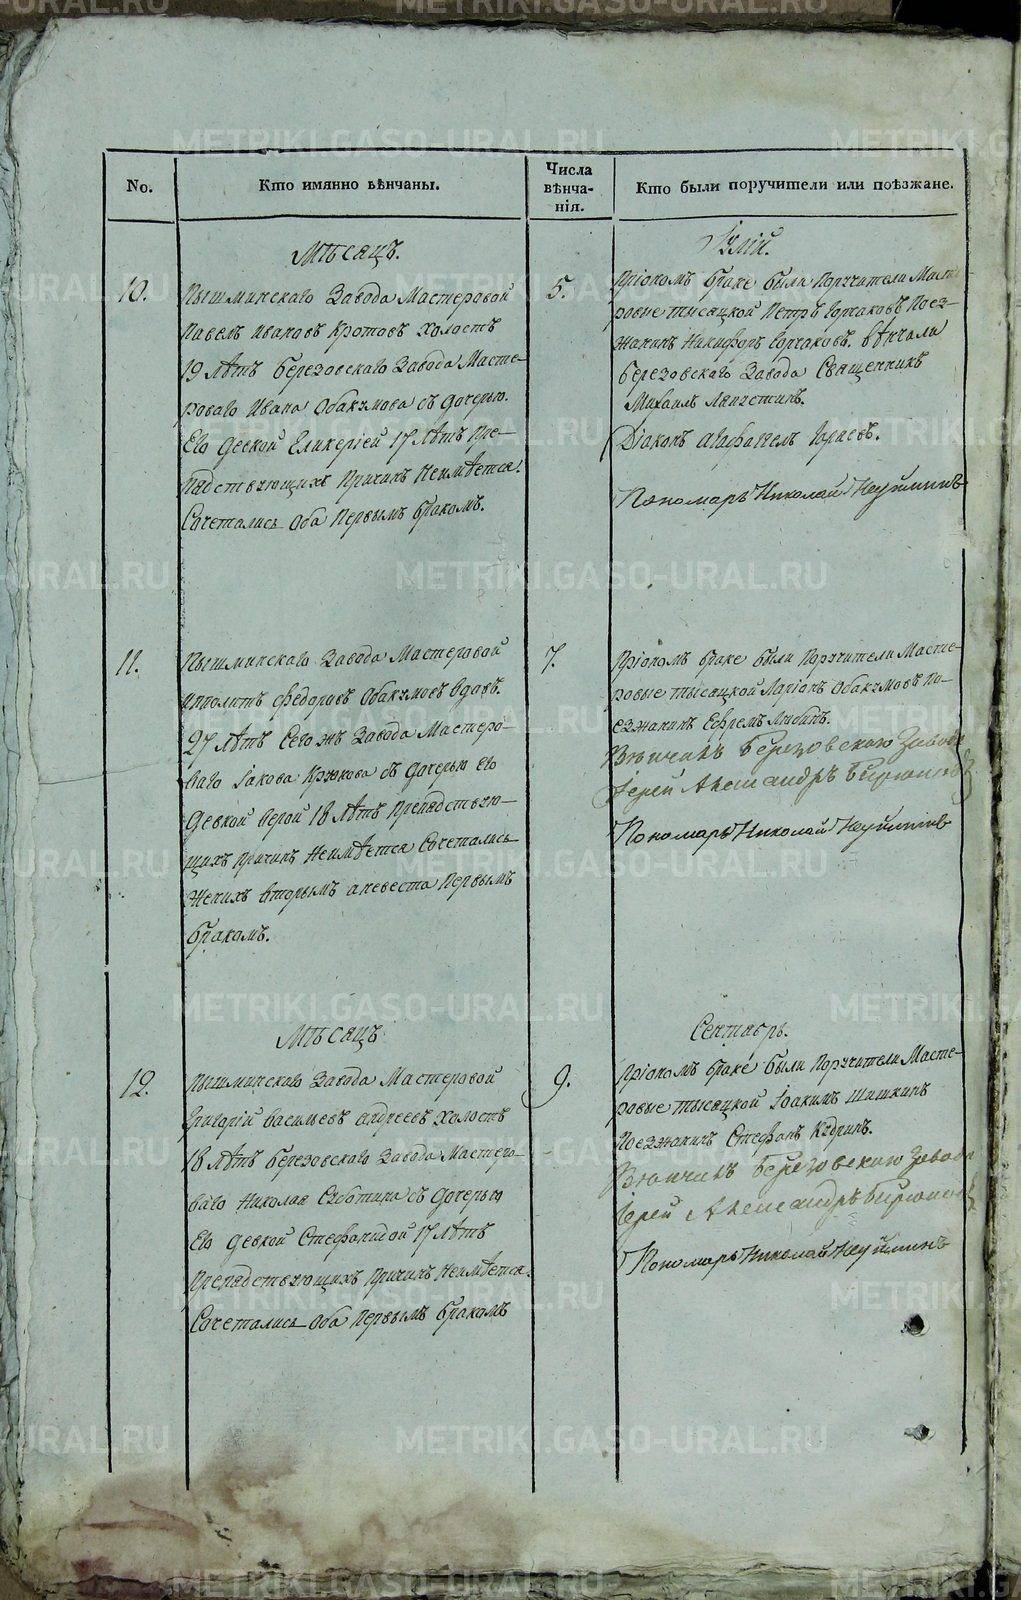 No.
Кто имянно вѣнчаны.
Числа
вѣнча-
нія.
Кто были поручители или поѣзжане.
Мѣсяцъ.
Іюлій.
10.
Пышминскаго Завода Мастеровой
Павелъ Ивановъ Кротовъ холостъ
19 лѣтъ Березовскаго Завода Масте-
роваго Ивана Обакумова съ дочерью
Его девкой Гликеріей 17 лѣтъ Пре-
пядствующихъ Причинъ Неимѣется.
Сочетались Оба Первымъ бракомъ.
5.
Приономъ браке были Поручители Масте-
ровые тысяцкой Петръ Горчаковъ Поез-
жанинъ Никифоръ Горчаковъ. вѣнчали
Березовскаго Завода Священникъ
Михаилъ
Діаконъ Агафангелъ
Пономарь Николай Неуйминъ
11.
Пышминскаго Завода Мастеровой
Иполитъ Федоровъ Обакумовъ вдовъ.
27 лѣтъ Сегожъ Завода Мастеро-
ваго Іакова Крюкова съ дочерью Его
девкой верой 18 лѣтъ Препядствую-
щихъ причинъ Неимѣется Сочетались
Женихъ вторымъ аневеста Первымъ
бракомъ.
7.
Приономъ браке были Поручители Масте-
ровые тысяцкой Ларіонъ Обакумовъ По-
езжанинъ Ефремъ
Вѣнчилъ Березовскаго Завода
Іерей Александръ Бирюковъ
Пономарь Николай Неуйминъ
Мѣсяцъ
Сентябрь.
12.
Пышминскаго Завода Мастеровой
Григорій Васильевъ Андреевъ холостъ
18 лѣтъ Березовскаго Завода Мастеро-
ваго Николая Субботина съ дочерью
Его девкой Стефанидой 17 лѣтъ
Препядствующихъ причинъ Неимѣется.
Сочетались Оба Первымъ бракомъ
9.
Приономъ браке были Поручители Масте-
ровые тысяцкой Іоакимъ Шишкинъ
Поезжанинъ Стефанъ Кудринъ.
Вѣнчилъ Березовскаго Завода
Іерей Александръ Бирюковъ
Пономарь Николай Неуйминъ
METRIKI.GASO-URAL.RU